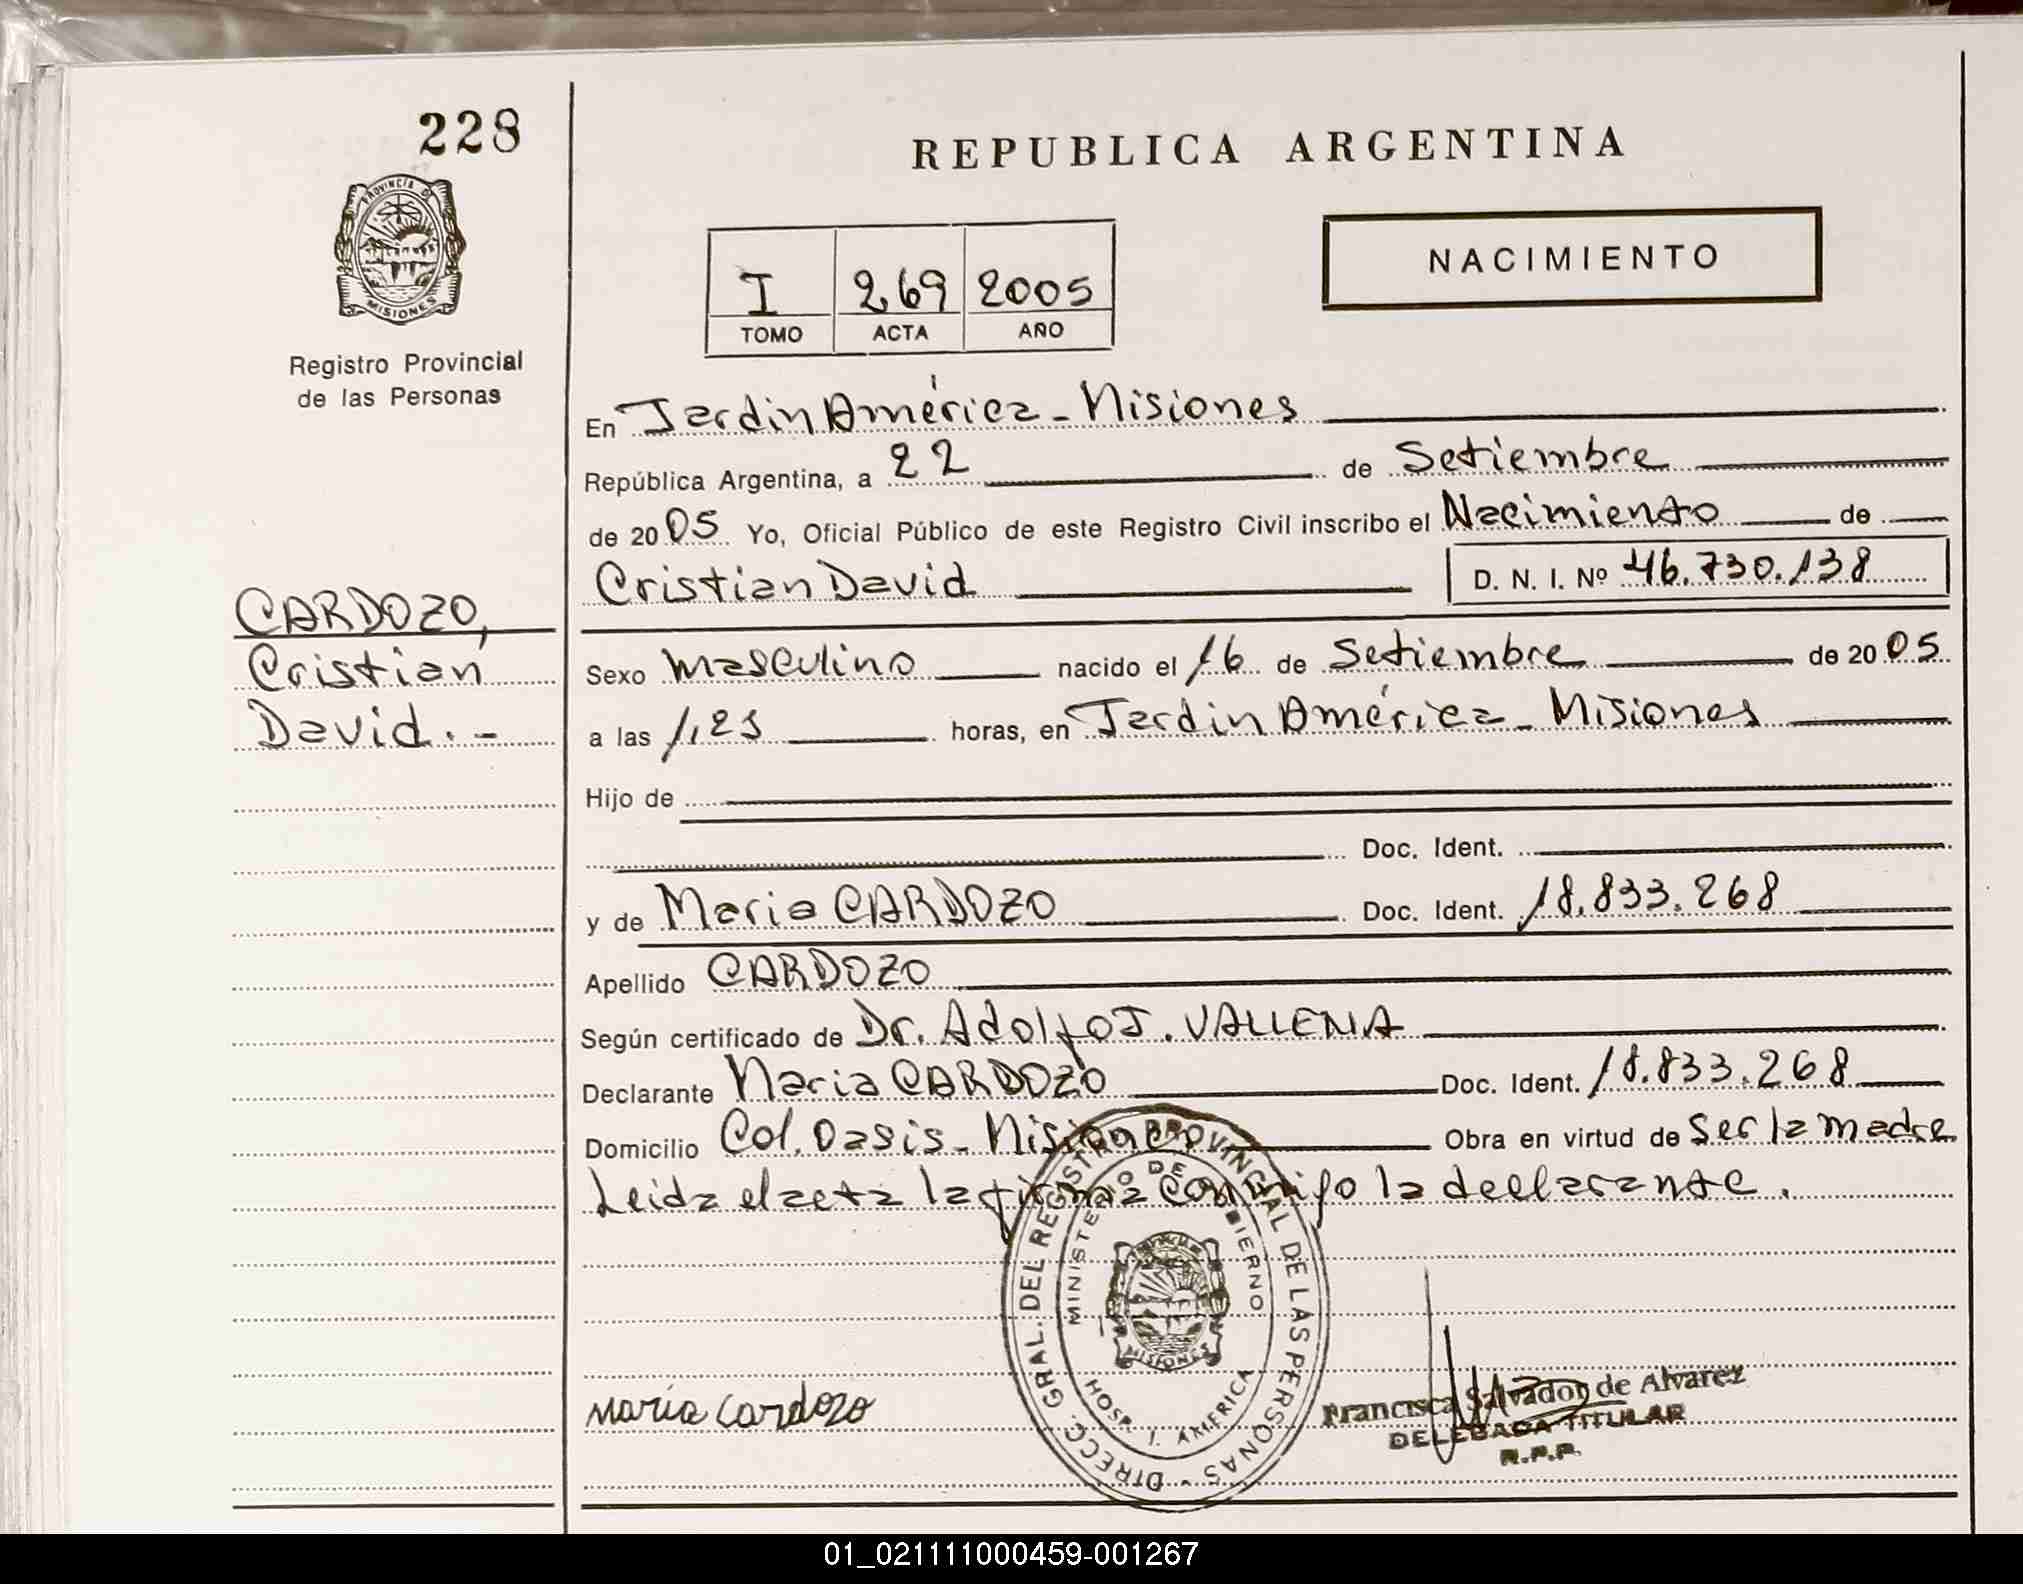 228
PROVINCIA D
MISIONES
Registro Provincial
de las Personas
CARDOZO,
Cristian
David.-
REPUBLICA ARGENTINA
NACIMIENTO
I 269 2005
TOMO ACTA AÑO
En Jardin América - Misiones
República Argentina, a 22 de Setiembre
de 2005 Yo, Oficial Público de este Registro Civil inscribo el Nacimiento de
Cristian David D. N. I. Nº 46.730.138
Sexo Masculino nacido el 16 de Setiembre de 2005
a las 1,25 horas, en Jardin América - Misiones
Hijo de
Doc. Ident.
y de Maria CARDOZO Doc. Ident. 18.833.268
Apellido CARDOZO
Según certificado de Dr. Adolfo J. VALLENA
Declarante Maria CARDOZO Doc. Ident. 18.833.268
Domicilio Col. Oasis - Misiones Obra en virtud de Ser la madre
Leida el acta la firma conmigo la declarante.
DIRECC. GRAL. DEL REGISTRO PROVINCIAL DE LAS PERSONAS -
MINISTERIO DE GOBIERNO
MISIONES
HOSP. J. AMERICA
María Cardozo
Francisca Salvador de Alvarez
DELEGADA TITULAR
R.P.P.
01_021111000459-001267